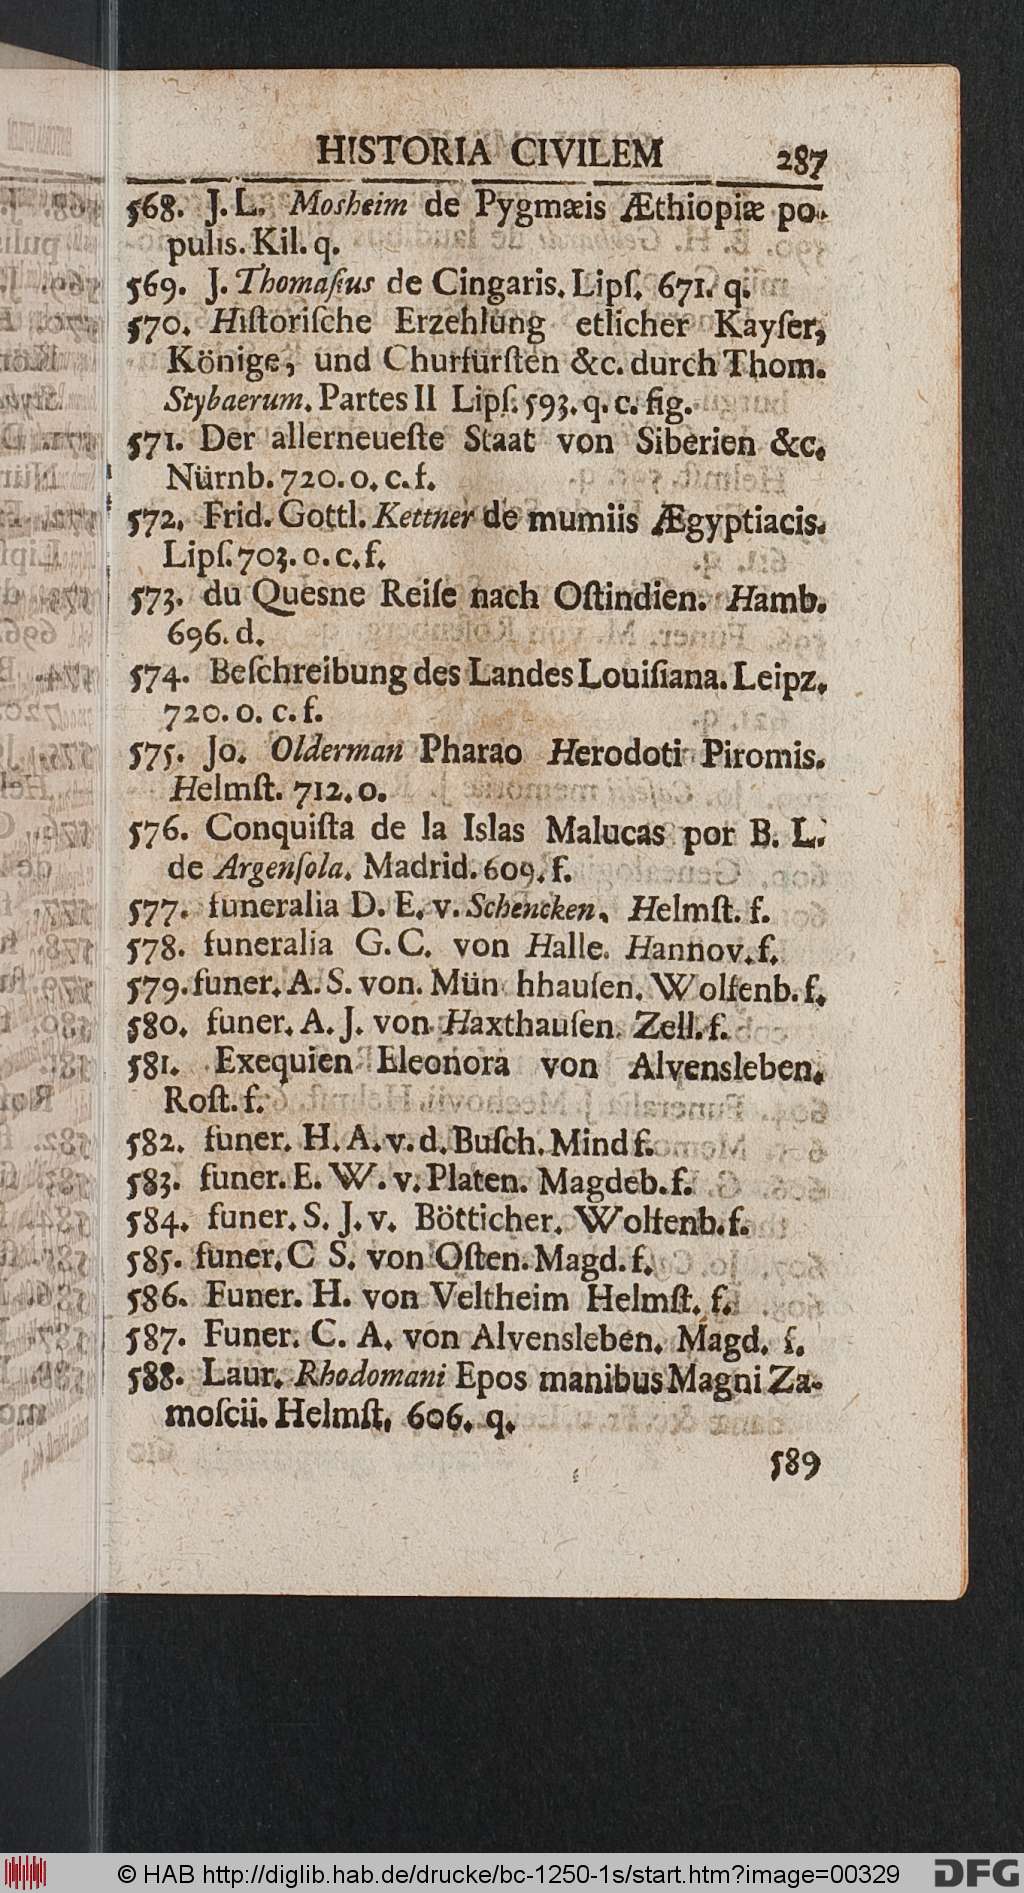 HISTORIA CIVILEM 287
568. J. L. Mosheim de Pygmæis Æthiopiæ po-
pulis. Kil. q.
569. J. Thomaſius de Cingaris. Lipſ. 671. q.
570. Hiſtoriſche Erzehlung etlicher Kayſer,
Könige, und Churfürſten &c. durch Thom.
Stybaerum. Partes II Lipſ. 593. q. c. fig.
571. Der allerneueſte Staat von Siberien &c.
Nürnb. 720. o. c. f.
572. Frid. Gottl. Kettner de mumiis Ægyptiacis.
Lipſ. 703. o. c. f.
573. du Quesne Reiſe nach Oſtindien. Hamb.
696. d.
574. Beſchreibung des Landes Louiſiana. Leipz.
720. o. c. f.
575. Jo. Olderman Pharao Herodoti Piromis.
Helmſt. 712. o.
576. Conquiſta de la Islas Malucas por B. L.
de Argenſola. Madrid. 609. f.
577. funeralia D. E. v. Schencken. Helmſt. f.
578. funeralia G. C. von Halle. Hannov. f.
579. funer. A. S. von. Mün hhauſen. Wolfenb. f.
580. funer. A. J. von Haxthauſen. Zell. f.
581. Exequien Eleonora von Alvensleben.
Roſt. f.
582. funer. H. A. v. d. Buſch. Mind f.
583. funer. E. W. v. Platen. Magdeb. f.
584. funer. S. J. v. Bötticher. Wolfenb. f.
585. funer. C S. von Oſten. Magd. f.
586. Funer. H. von Veltheim Helmſt. f.
587. Funer. C. A. von Alvensleben. Magd. f.
588. Laur. Rhodomani Epos manibus Magni Za-
moſcii. Helmſt. 606. q.
589
© HAB http://diglib.hab.de/drucke/bc-1250-1s/start.htm?image=00329
DFG